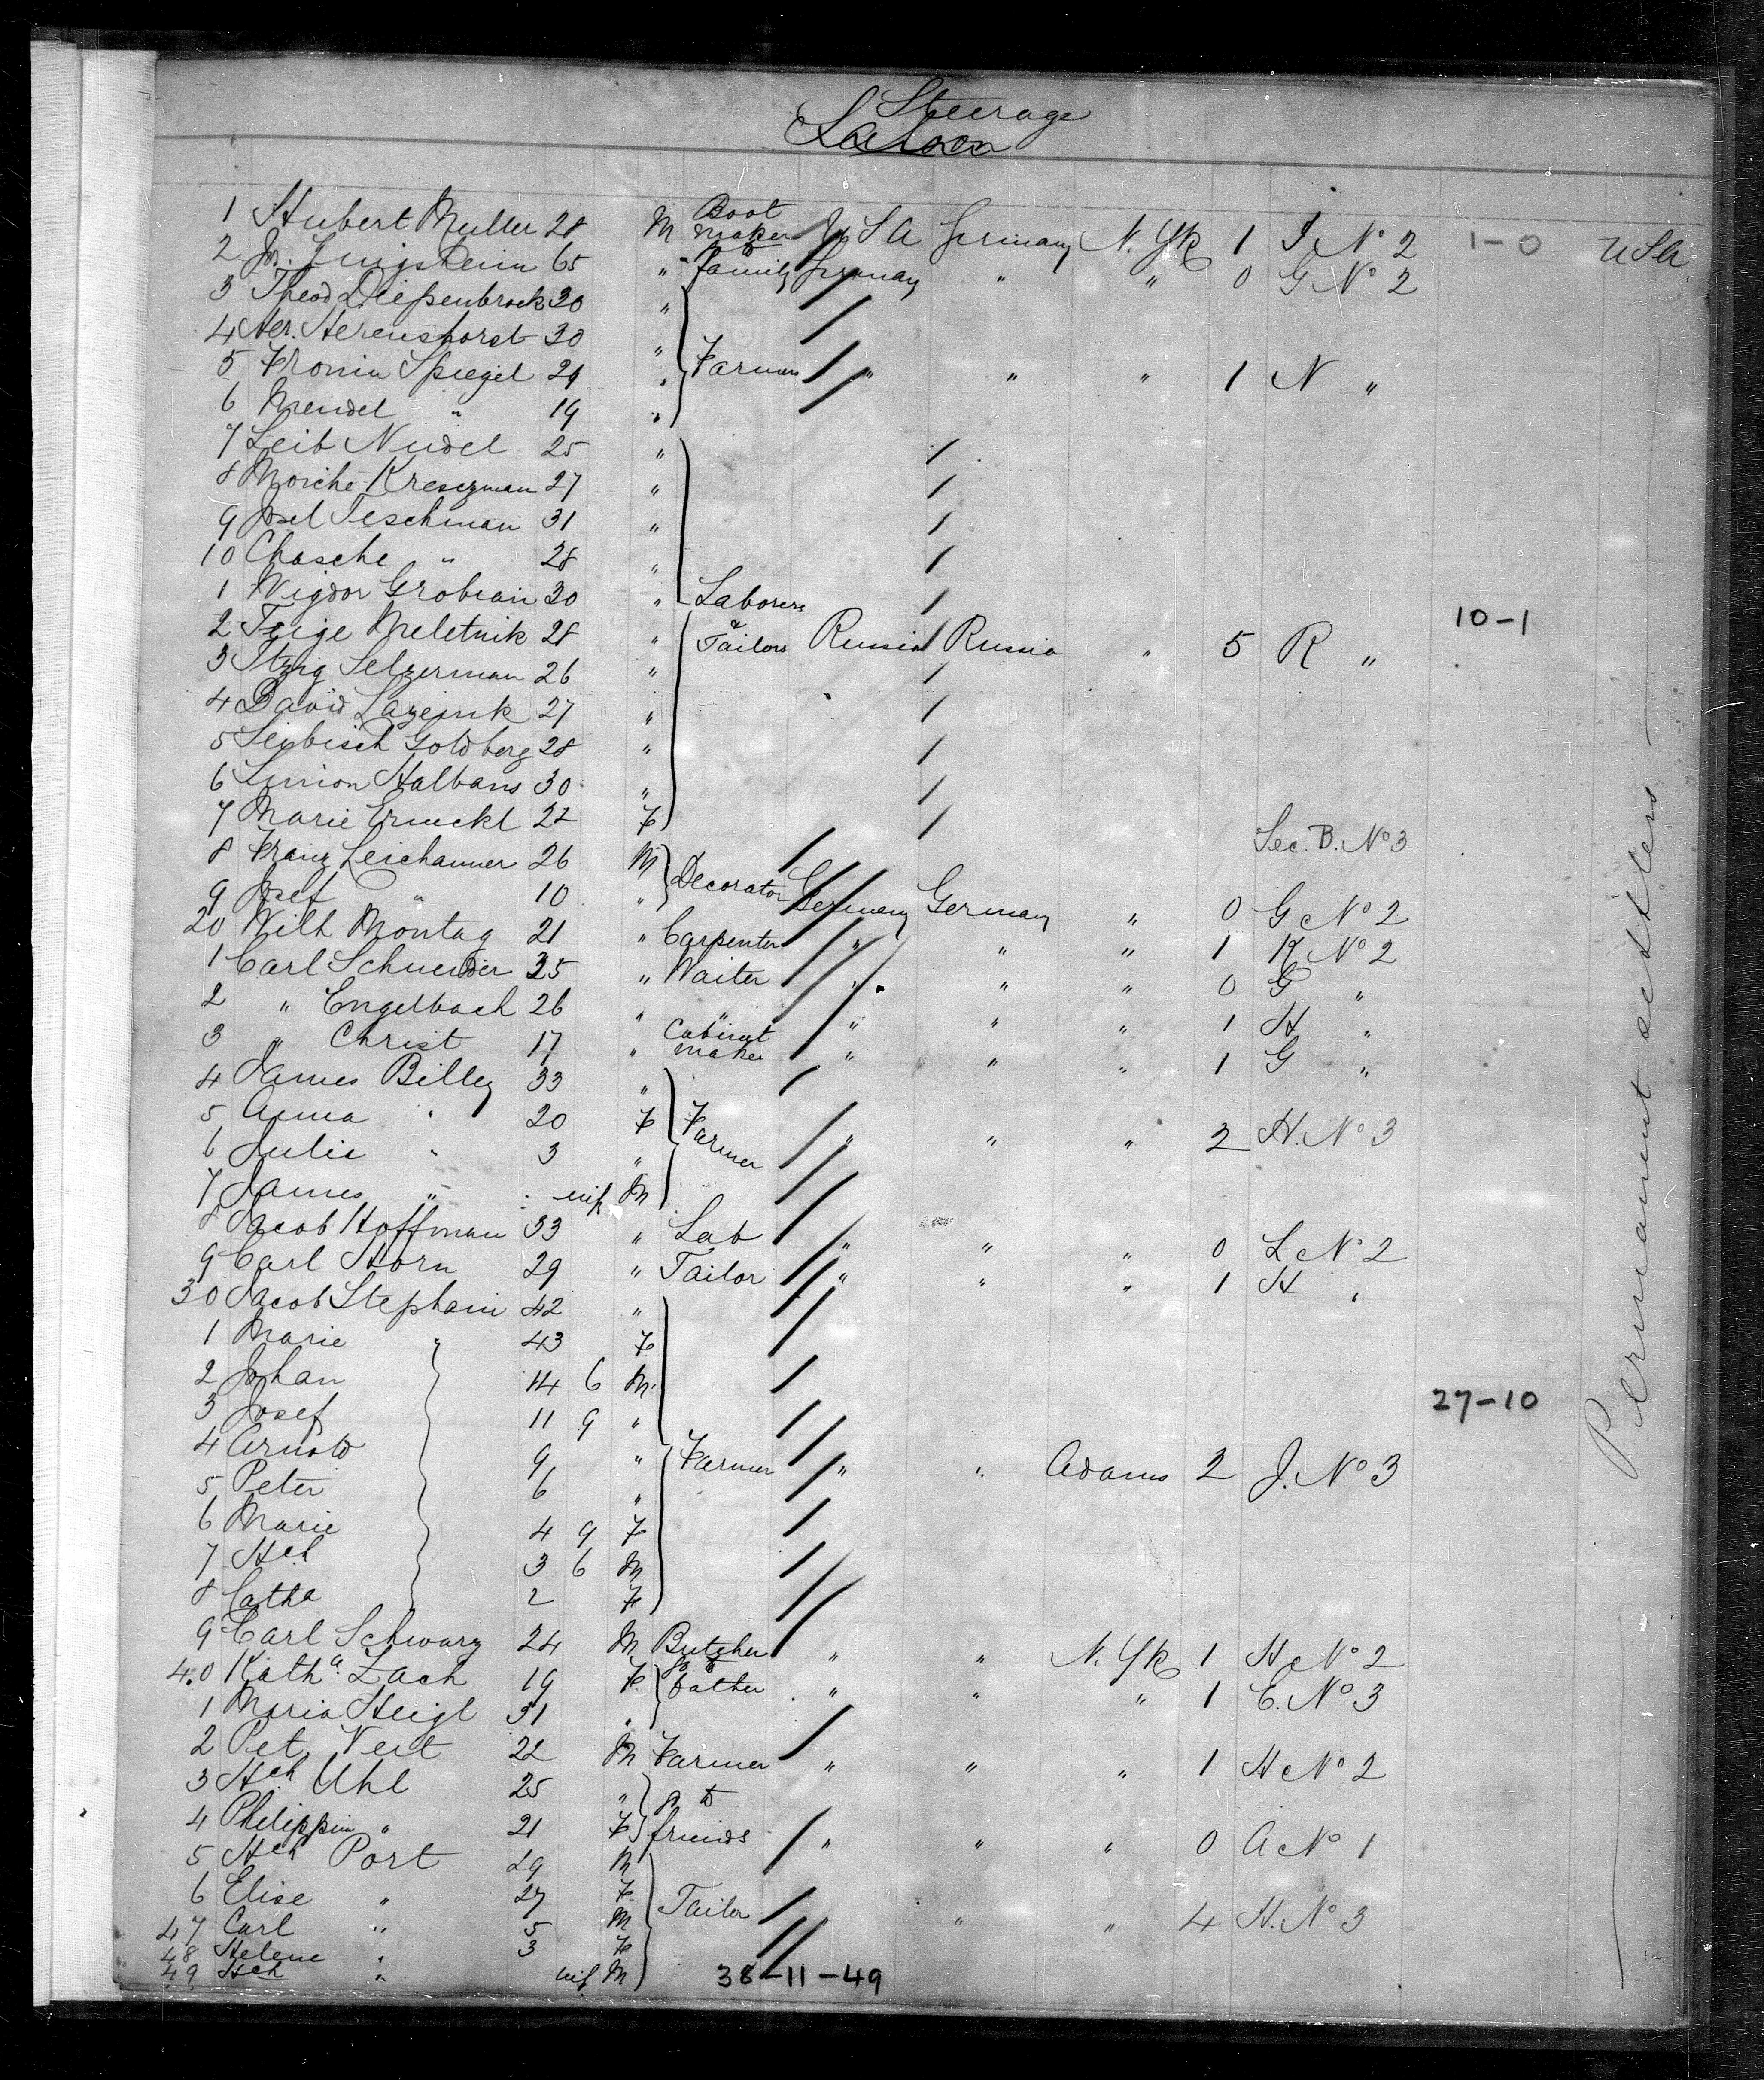 Steerage
Saloon
1 Hubert Muller 28 M Boot maker U S A Germany N. Yk 1 I No 2 1-0 USA
2 65 " family Germany " " 0 G No 2
3 Theod Diepenbrock 30 "
4 Her. Herenshorst 30 "
5 Spiegel 29 " Farmers " " " 1 N "
6 Mendel " 19 "
7 Leib Nudel 25 "
8 Moiche Kresczman 27 "
9 Josel Teschman 31 "
10 Chasche " 28 "
1 Wigdor Grobian 30 " Laborers
2 Meletnik 28 " & Tailors Russia Russia " 5 R " 10-1
3 Itzig Selzerman 26 "
4 David 27 "
5 Leibisch Goldberg 28 "
6 Simon Halbans 30 "
7 Marie 22 F
Sec. B. No 3
8 Franz Leichanner 26 M
9 Josef " 10 " Decorator Germany Germany " 0 G No 2
20 Wilh Montag 21 " Carpenter " " " 1 K No 2
1 Carl Schneider 35 " Waiter " " " 0 G "
2 " Engelbach 26 " " " " " 1 H "
3 " Christ 17 " Cabinet maker " " " 1 G "
4 James Billey 33 "
5 Anna " 20 F Farmer " " " 2 H. No 3
6 Julie " 3 "
7 James " inf M
8 Jacob Hoffman 33 " Lab " " " 0 L No 2
9 Carl Horn 29 " Tailor " " " 1 H "
30 Jacob Stephani 42 "
1 Marie " 43 F
2 Johan 14 6 M.
3 Josef 11 9 " 27-10
4 Arnold 9 " Farmer " " Adams 2 J. No 3
5 Peter 6 "
6 Marie 4 9 F
7 Hch 3 6 M
8 Catha 2 F
9 Carl Schwarz 24 M Butcher " " N. Yk 1 H No 2
40 Katha. Zach 19 F go to father " " " 1 C. No 3
1 Maria Heigl 31 "
2 Pet. Veit 22 M Farmer " " " 1 H No 2
3 Hch Uhl 25 " go to
4 Philippin " 21 F friends " " " 0 A No 1
5 Hch Port 29 M
6 Elise " 27 F Tailor " " 4 H. No 3
47 Carl " 5 M
48 Helene " 3 F
49 Hch " inf M
38-11-49
Permanent settlers